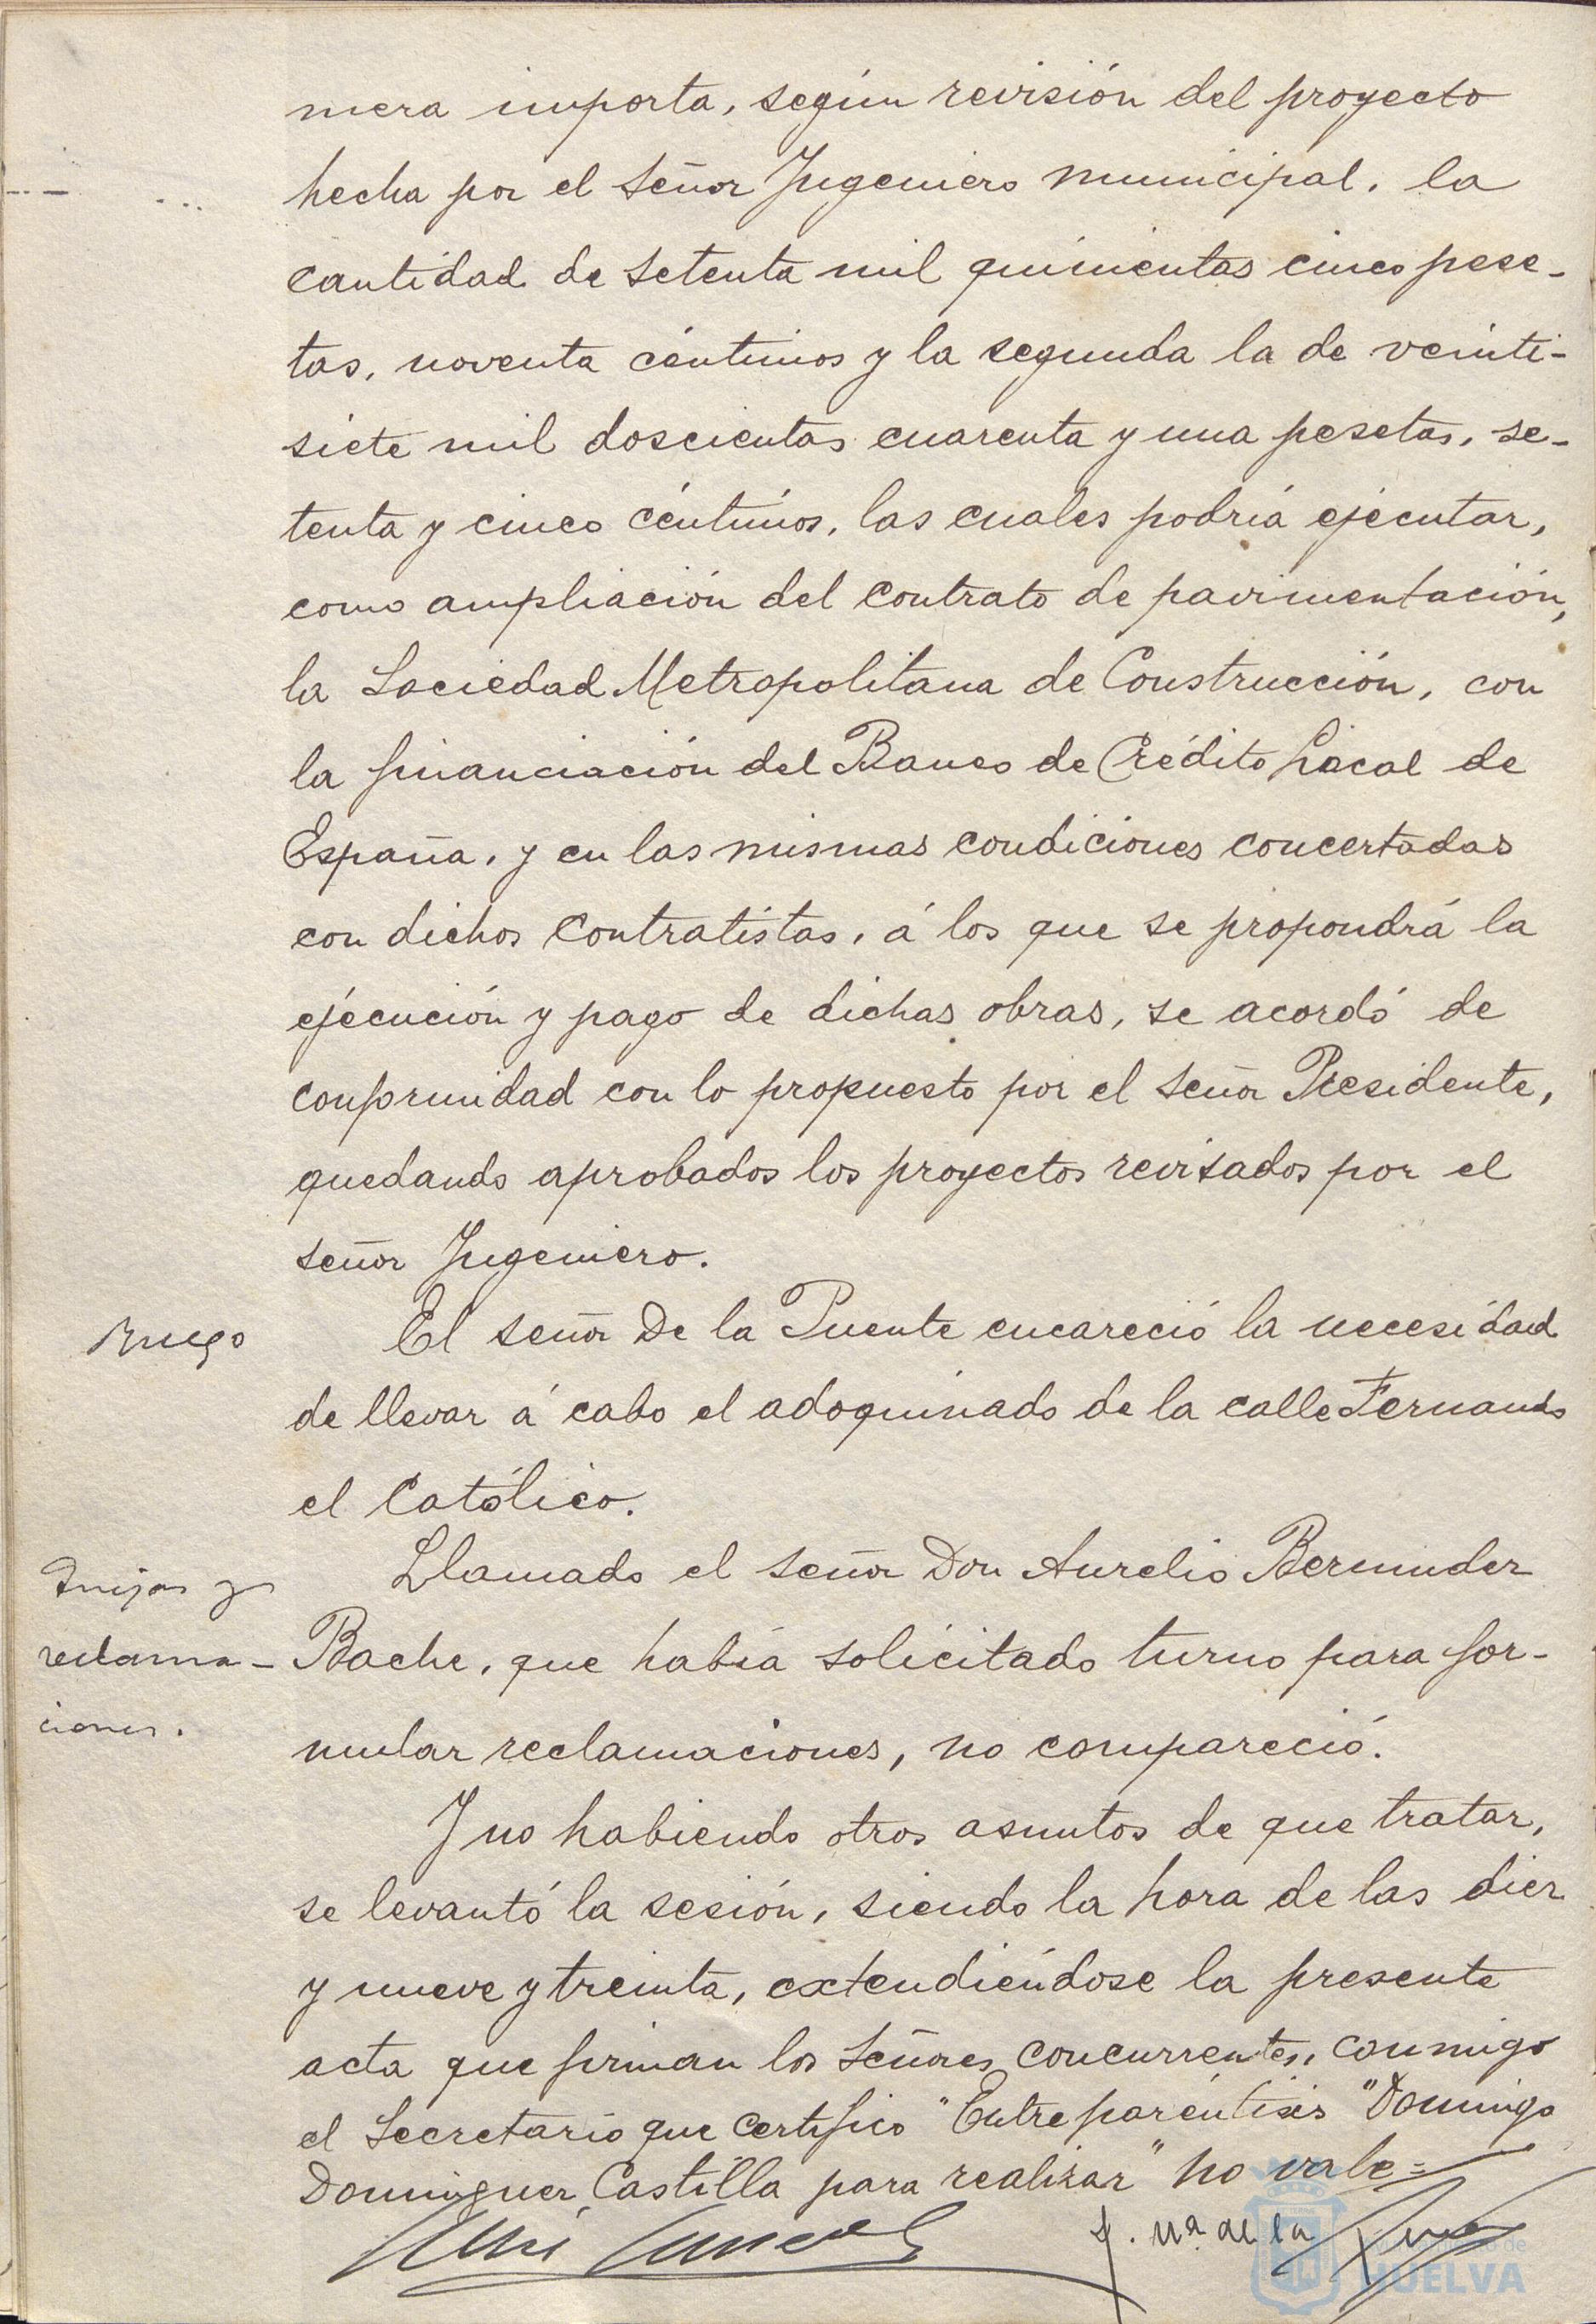 mera importa, según revisión del proyecto
hecha por el Señor Ingeniero municipal, la
cantidad de setenta mil quinientas cinco pese-
tas, noventa céntimos y la segunda la de veinti-
siete mil doscientas cuarenta y una pesetas, se-
tenta y cinco céntimos, las cuales podría ejecutar,
como ampliación del contrato de pavimentación,
la Sociedad Metropolitana de Construcción, con
la financiación del Banco de Crédito Local de
España, y en las mismas condiciones concertadas
con dichos contratistas, á los que se propondrá la
ejécución y pago de dichas obras, se acordó de
conformidad con lo propuesto por el señor Presidente,
quedando aprobados los proyectos revisados por el
señor Ingeniero.
Ruego
El señor De la Puente encareció la necesidad
de llevar á cabo el adoquinado de la calle Fernando
el Católico.
Quejas y
reclama-
ciones.
Llamado el señor Don Aurelio Bermudez
Bache, que había solicitado turno para for-
mular reclamaciones, no compareció.
Y no habiendo otros asuntos de que tratar,
se levantó la sesión, siendo la hora de las diez
y nueve y treinta, extendiéndose la presente
acta que firman los Señores concurrentes, conmigo
el Secretario que certifico "Entre paréntisis "Domingo
Dominguez Castilla para realizar" no vale=
J. Mª de la
Ayuntamiento de
HUELVA